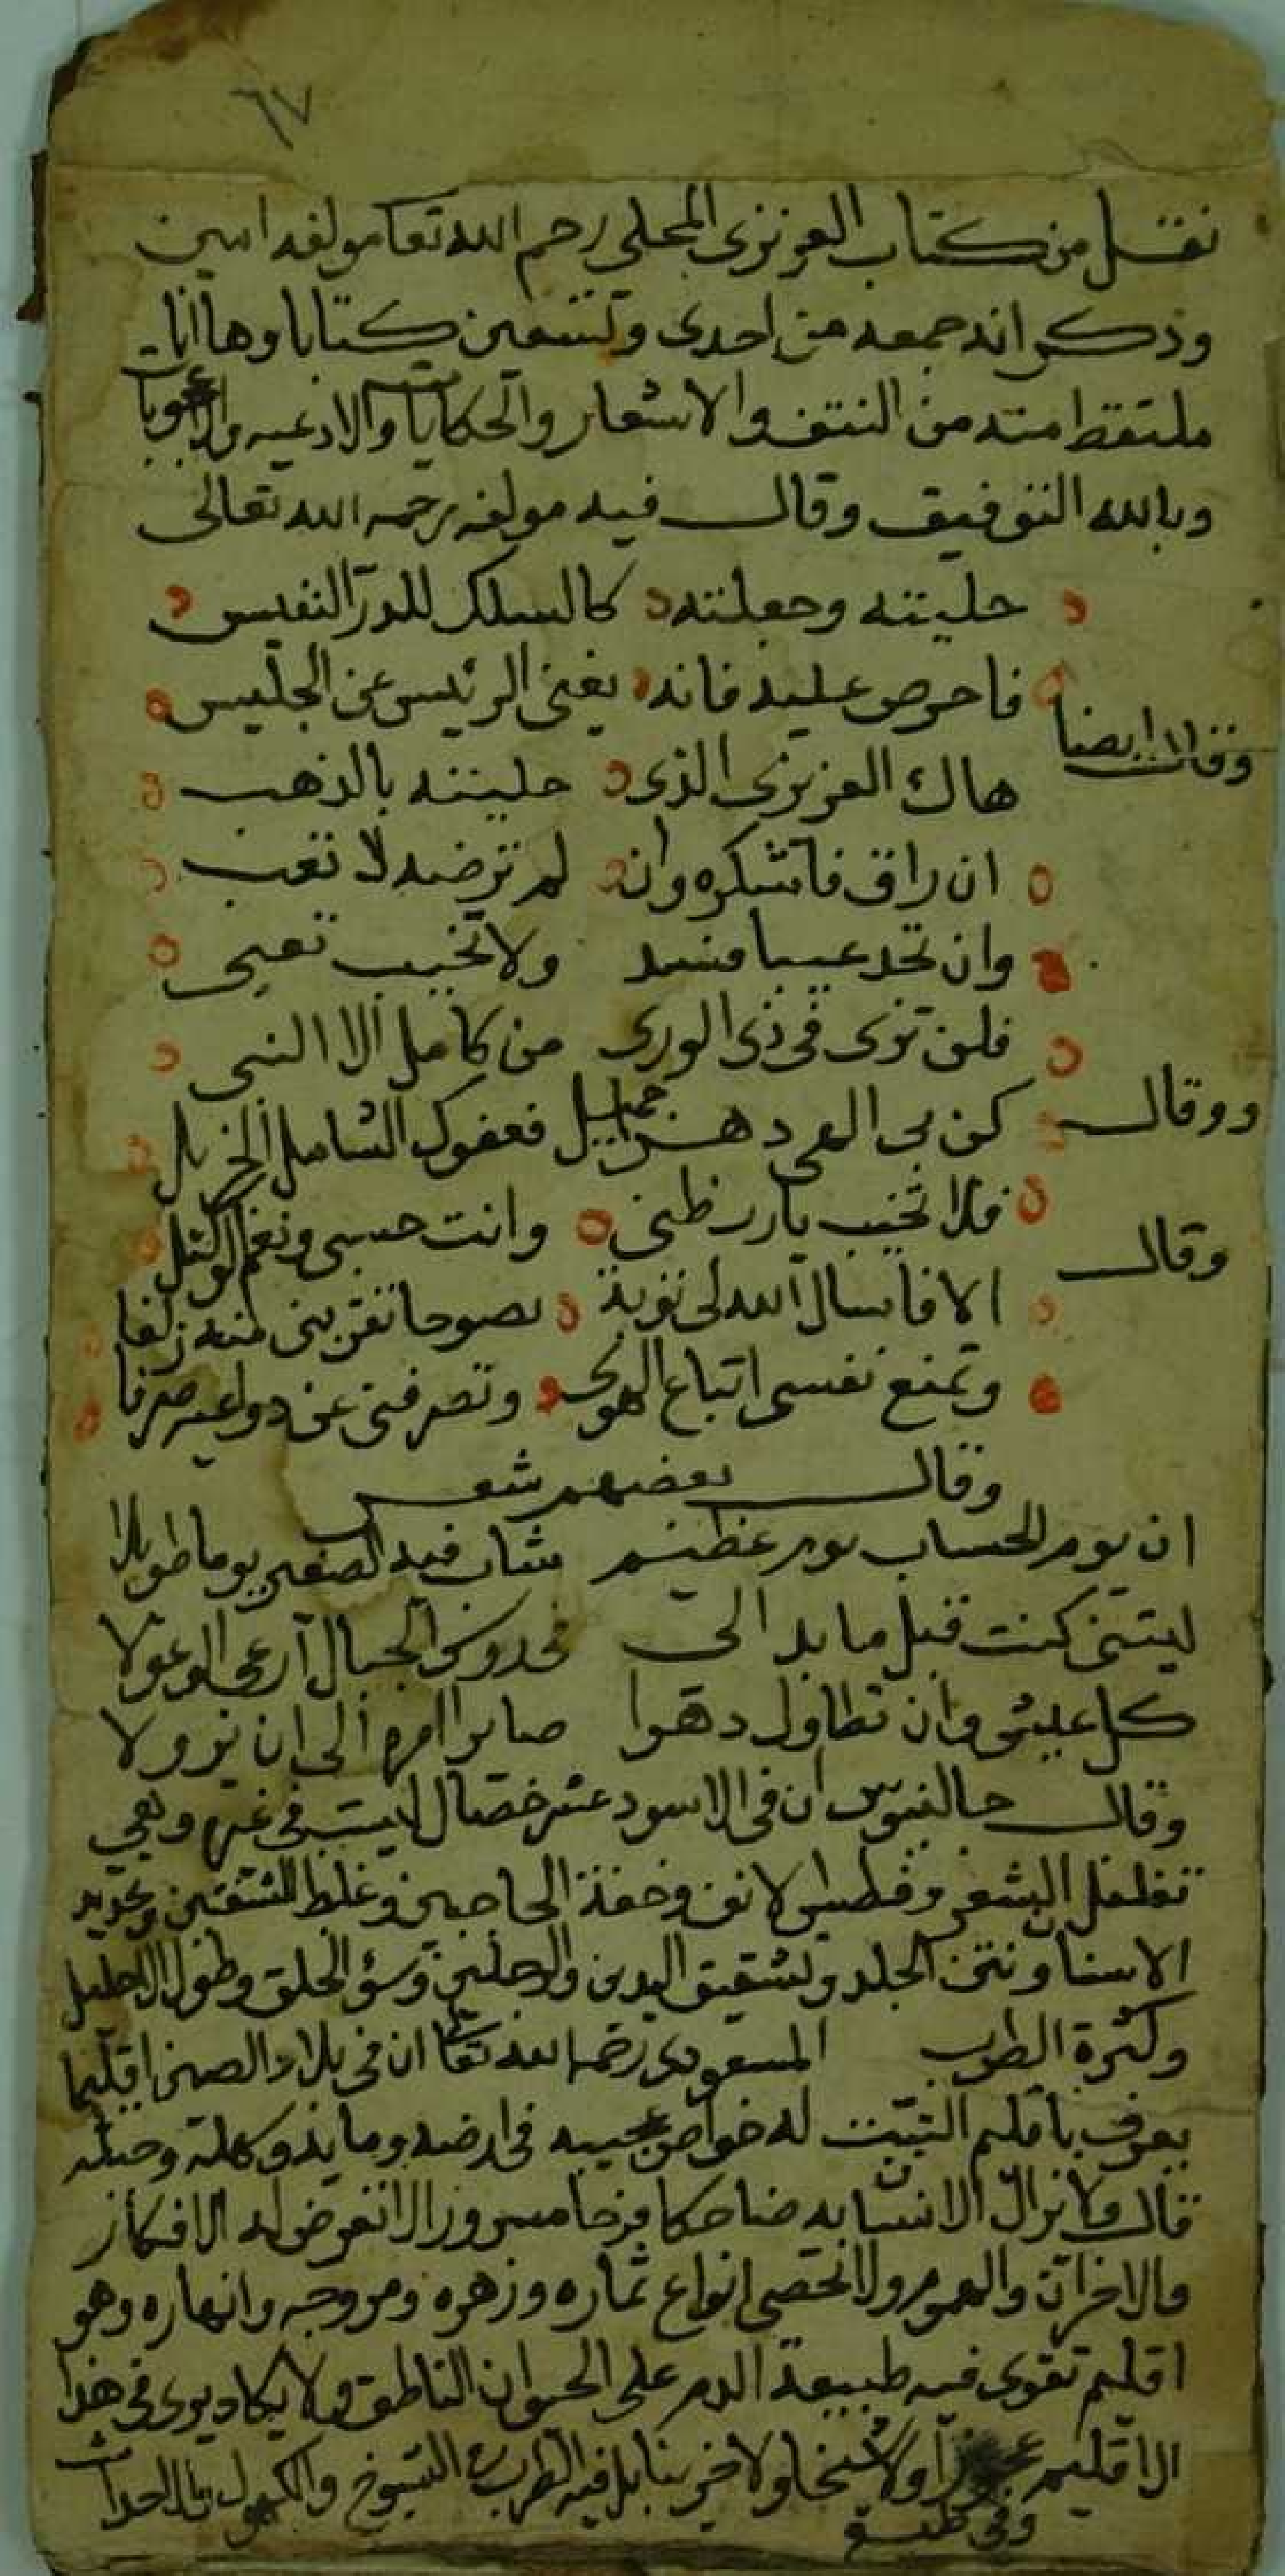 ٦٧
نقل من كتاب العزيزى المحلى رحم الله تعا مولفه امين
وذكر انه جمعه من احدى وتسعين كتابا وها انا
ملتقط منه من النتف والاشعار والحكايات والادعيه
وبالله التوفيق وقال فيه مولفه رحمه الله تعالى
حليته وجعلته كالسلك للدر النفيس
فاحرص عليه فانه يغنى الرئيس عن الجليس
وقال ايضا
هاك العزيزى الذى حليته بالذهب
ان راق فاشكره وان لم ترضه لا تعب
وان تجد عيبا فسد ولا تخيب تعبى
فلن ترى فى ذى الورى من كامل الا النبى
ووقال
كن بى الهى جميل فعفوك الشامل الجزيل
فلا تخيب يارب ظنى وانت حسبى ونعم الوكيل
وقال
الا فاسال الله لى توبة نصوحا تقربنى منه زلفا
وتمنع نفسى اتباع الهوى وتصرفنى عن دواعيه صرفا
وقال بعضهم شعر
ان يوم الحساب يوم عظيم شاب فيه الصغير يوما طويلا
ليتنى كنت قبل ما بدا لى فى روس الجبال ارعى الوعولا
كل عيش وان تطاول دهرا صاير امره الى ان يزولا
وقال جالينوس ان فى الاسود عشر خصال ليست فى غيره وهي
تفلفل الشعر وفطس الانف وخفة الحاجبين وغلظ الشفتين وتحديد
الاسنان ونتن الجلد وتشقيق اليدين والرجلين وسؤ الخلق وطول الاحليل
وكثرة الطرب المسعودى رحمه الله تعالى ان فى بلاد الصين اقليما
يعرف باقليم التبت له خواص عجيبه فى ارضه ومايه وسهله وجبله
قال ولا يزال الانسان به ضاحكا فرحا مسرورا لا تعرض له الافكار
والاحزان والهموم ولا تحصى انواع ثماره وزهره ومروجه وانهاره وهو
اقليم تقوى فيه طبيعة الدم على الحيوان الناطق ولا يكاد يرى فى هذا
الاقليم عجوزا ولا شيخا ولا حزينا بل فيه الطرب فى الشيوخ والكهول والاحداث
وفى